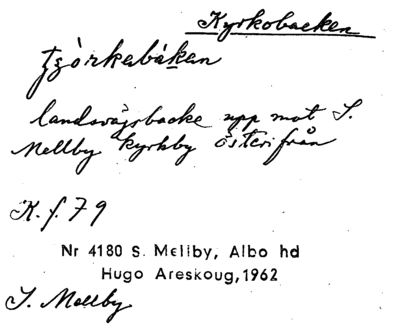 Kyrkobacken
tzòrkabákan
landsvägsbacke upp mot S.
Mellby kyrkby österifrån
K. f. 79
Nr 4180 S. Mellby, Albo hd
Hugo Areskoug, 1962
S. Mellby